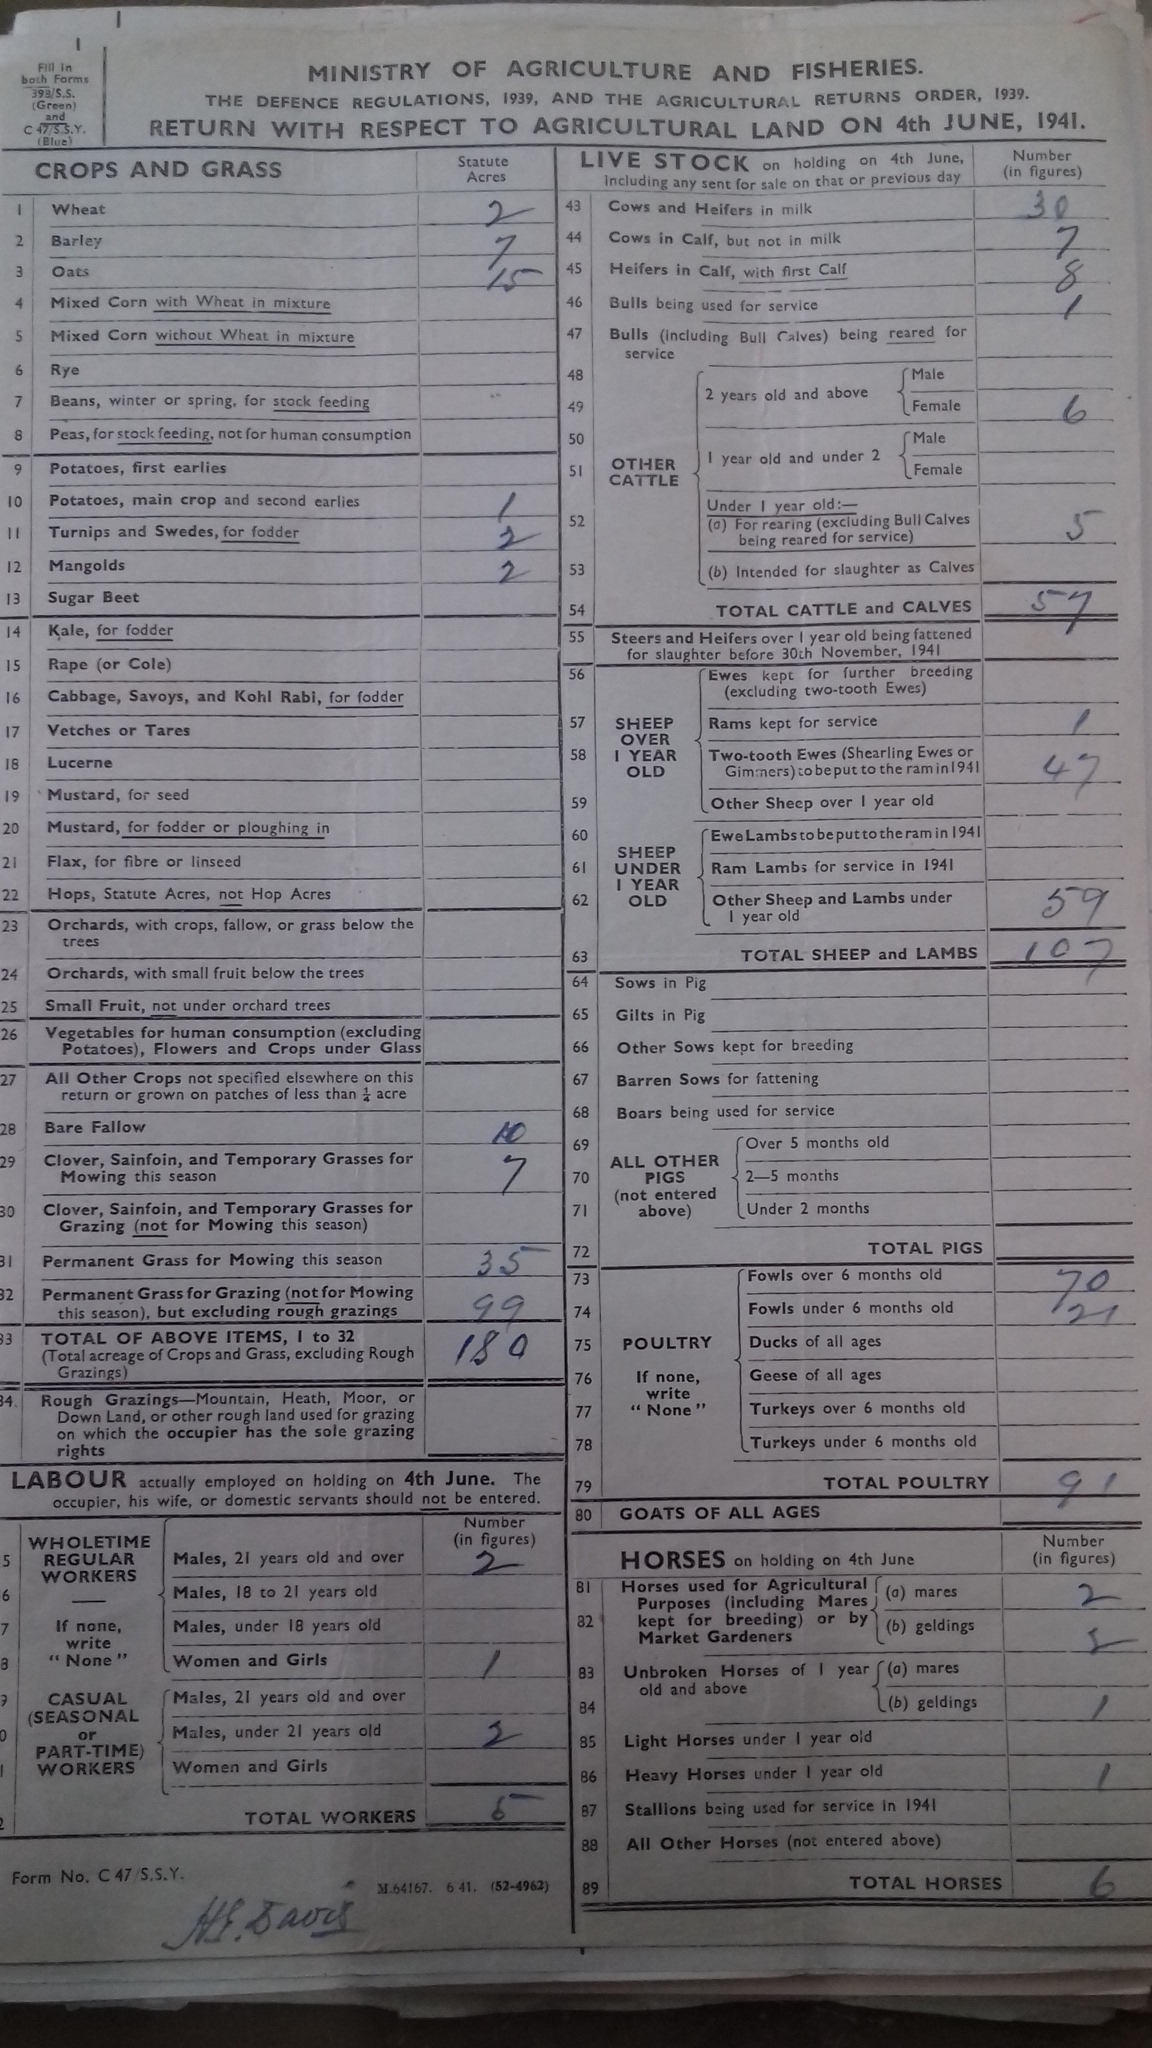 Fill in
both Forms
398/S.S.
(Green)
and
C 47/S.S.Y.
(Blue)
MINISTRY OF AGRICULTURE AND FISHERIES.
THE DEFENCE REGULATIONS, 1939, AND THE AGRICULTURAL RETURNS ORDER, 1939.
RETURN WITH RESPECT TO AGRICULTURAL LAND ON 4th JUNE, 1941.
CROPS AND GRASS Statute
Acres
1 Wheat 2
2 Barley 7
3 Oats 15
4 Mixed Corn with Wheat in mixture
5 Mixed Corn without Wheat in mixture
6 Rye
7 Beans, winter or spring, for stock feeding
8 Peas, for stock feeding, not for human consumption
9 Potatoes, first earlies
10 Potatoes, main crop and second earlies 1
11 Turnips and Swedes, for fodder 2
12 Mangolds 2
13 Sugar Beet
14 Kale, for fodder
15 Rape (or Cole)
16 Cabbage, Savoys, and Kohl Rabi, for fodder
17 Vetches or Tares
18 Lucerne
19 Mustard, for seed
20 Mustard, for fodder or ploughing in
21 Flax, for fibre or linseed
22 Hops, Statute Acres, not Hop Acres
23 Orchards, with crops, fallow, or grass below the
trees
24 Orchards, with small fruit below the trees
25 Small Fruit, not under orchard trees
26 Vegetables for human consumption (excluding
Potatoes), Flowers and Crops under Glass
27 All Other Crops not specified elsewhere on this
return or grown on patches of less than ¼ acre
28 Bare Fallow 10
29 Clover, Sainfoin, and Temporary Grasses for
Mowing this season 7
30 Clover, Sainfoin, and Temporary Grasses for
Grazing (not for Mowing this season)
31 Permanent Grass for Mowing this season 35
32 Permanent Grass for Grazing (not for Mowing
this season), but excluding rough grazings 99
33 TOTAL OF ABOVE ITEMS, 1 to 32
(Total acreage of Crops and Grass, excluding Rough
Grazings) 180
34 Rough Grazings—Mountain, Heath, Moor, or
Down Land, or other rough land used for grazing
on which the occupier has the sole grazing
rights
LABOUR actually employed on holding on 4th June. The
occupier, his wife, or domestic servants should not be entered.
Number
(in figures)
WHOLETIME
REGULAR
WORKERS
If none,
write
"None"
5 Males, 21 years old and over 2
6 Males, 18 to 21 years old
7 Males, under 18 years old
8 Women and Girls 1
CASUAL
(SEASONAL
or
PART-TIME)
WORKERS
9 Males, 21 years old and over
0 Males, under 21 years old 2
1 Women and Girls
2 TOTAL WORKERS 5
Form No. C 47/S.S.Y.
M.64167. 6 41. (52-4962)
H.E. Davis
LIVE STOCK on holding on 4th June,
including any sent for sale on that or previous day
Number
(in figures)
43 Cows and Heifers in milk 30
44 Cows in Calf, but not in milk 7
45 Heifers in Calf, with first Calf 8
46 Bulls being used for service 1
47 Bulls (including Bull Calves) being reared for
service
OTHER
CATTLE
2 years old and above
48 Male
49 Female 6
1 year old and under 2
50 Male
51 Female
Under 1 year old:—
52 (a) For rearing (excluding Bull Calves
being reared for service) 5
53 (b) Intended for slaughter as Calves
54 TOTAL CATTLE and CALVES 57
55 Steers and Heifers over 1 year old being fattened
for slaughter before 30th November, 1941
SHEEP
OVER
1 YEAR
OLD
56 Ewes kept for further breeding
(excluding two-tooth Ewes)
57 Rams kept for service 1
58 Two-tooth Ewes (Shearling Ewes or
Gimmers) to be put to the ram in 1941 47
59 Other Sheep over 1 year old
SHEEP
UNDER
1 YEAR
OLD
60 Ewe Lambs to be put to the ram in 1941
61 Ram Lambs for service in 1941
62 Other Sheep and Lambs under
1 year old 59
63 TOTAL SHEEP and LAMBS 107
64 Sows in Pig
65 Gilts in Pig
66 Other Sows kept for breeding
67 Barren Sows for fattening
68 Boars being used for service
ALL OTHER
PIGS
(not entered
above)
69 Over 5 months old
70 2—5 months
71 Under 2 months
72 TOTAL PIGS
POULTRY
If none,
write
"None"
73 Fowls over 6 months old 70
74 Fowls under 6 months old 21
75 Ducks of all ages
76 Geese of all ages
77 Turkeys over 6 months old
78 Turkeys under 6 months old
79 TOTAL POULTRY 91
80 GOATS OF ALL AGES
HORSES on holding on 4th June
Number
(in figures)
Horses used for Agricultural
Purposes (including Mares
kept for breeding) or by
Market Gardeners
81 (a) mares 2
82 (b) geldings
Unbroken Horses of 1 year
old and above
83 (a) mares
84 (b) geldings 1
85 Light Horses under 1 year old
86 Heavy Horses under 1 year old 1
87 Stallions being used for service in 1941
88 All Other Horses (not entered above)
89 TOTAL HORSES 6